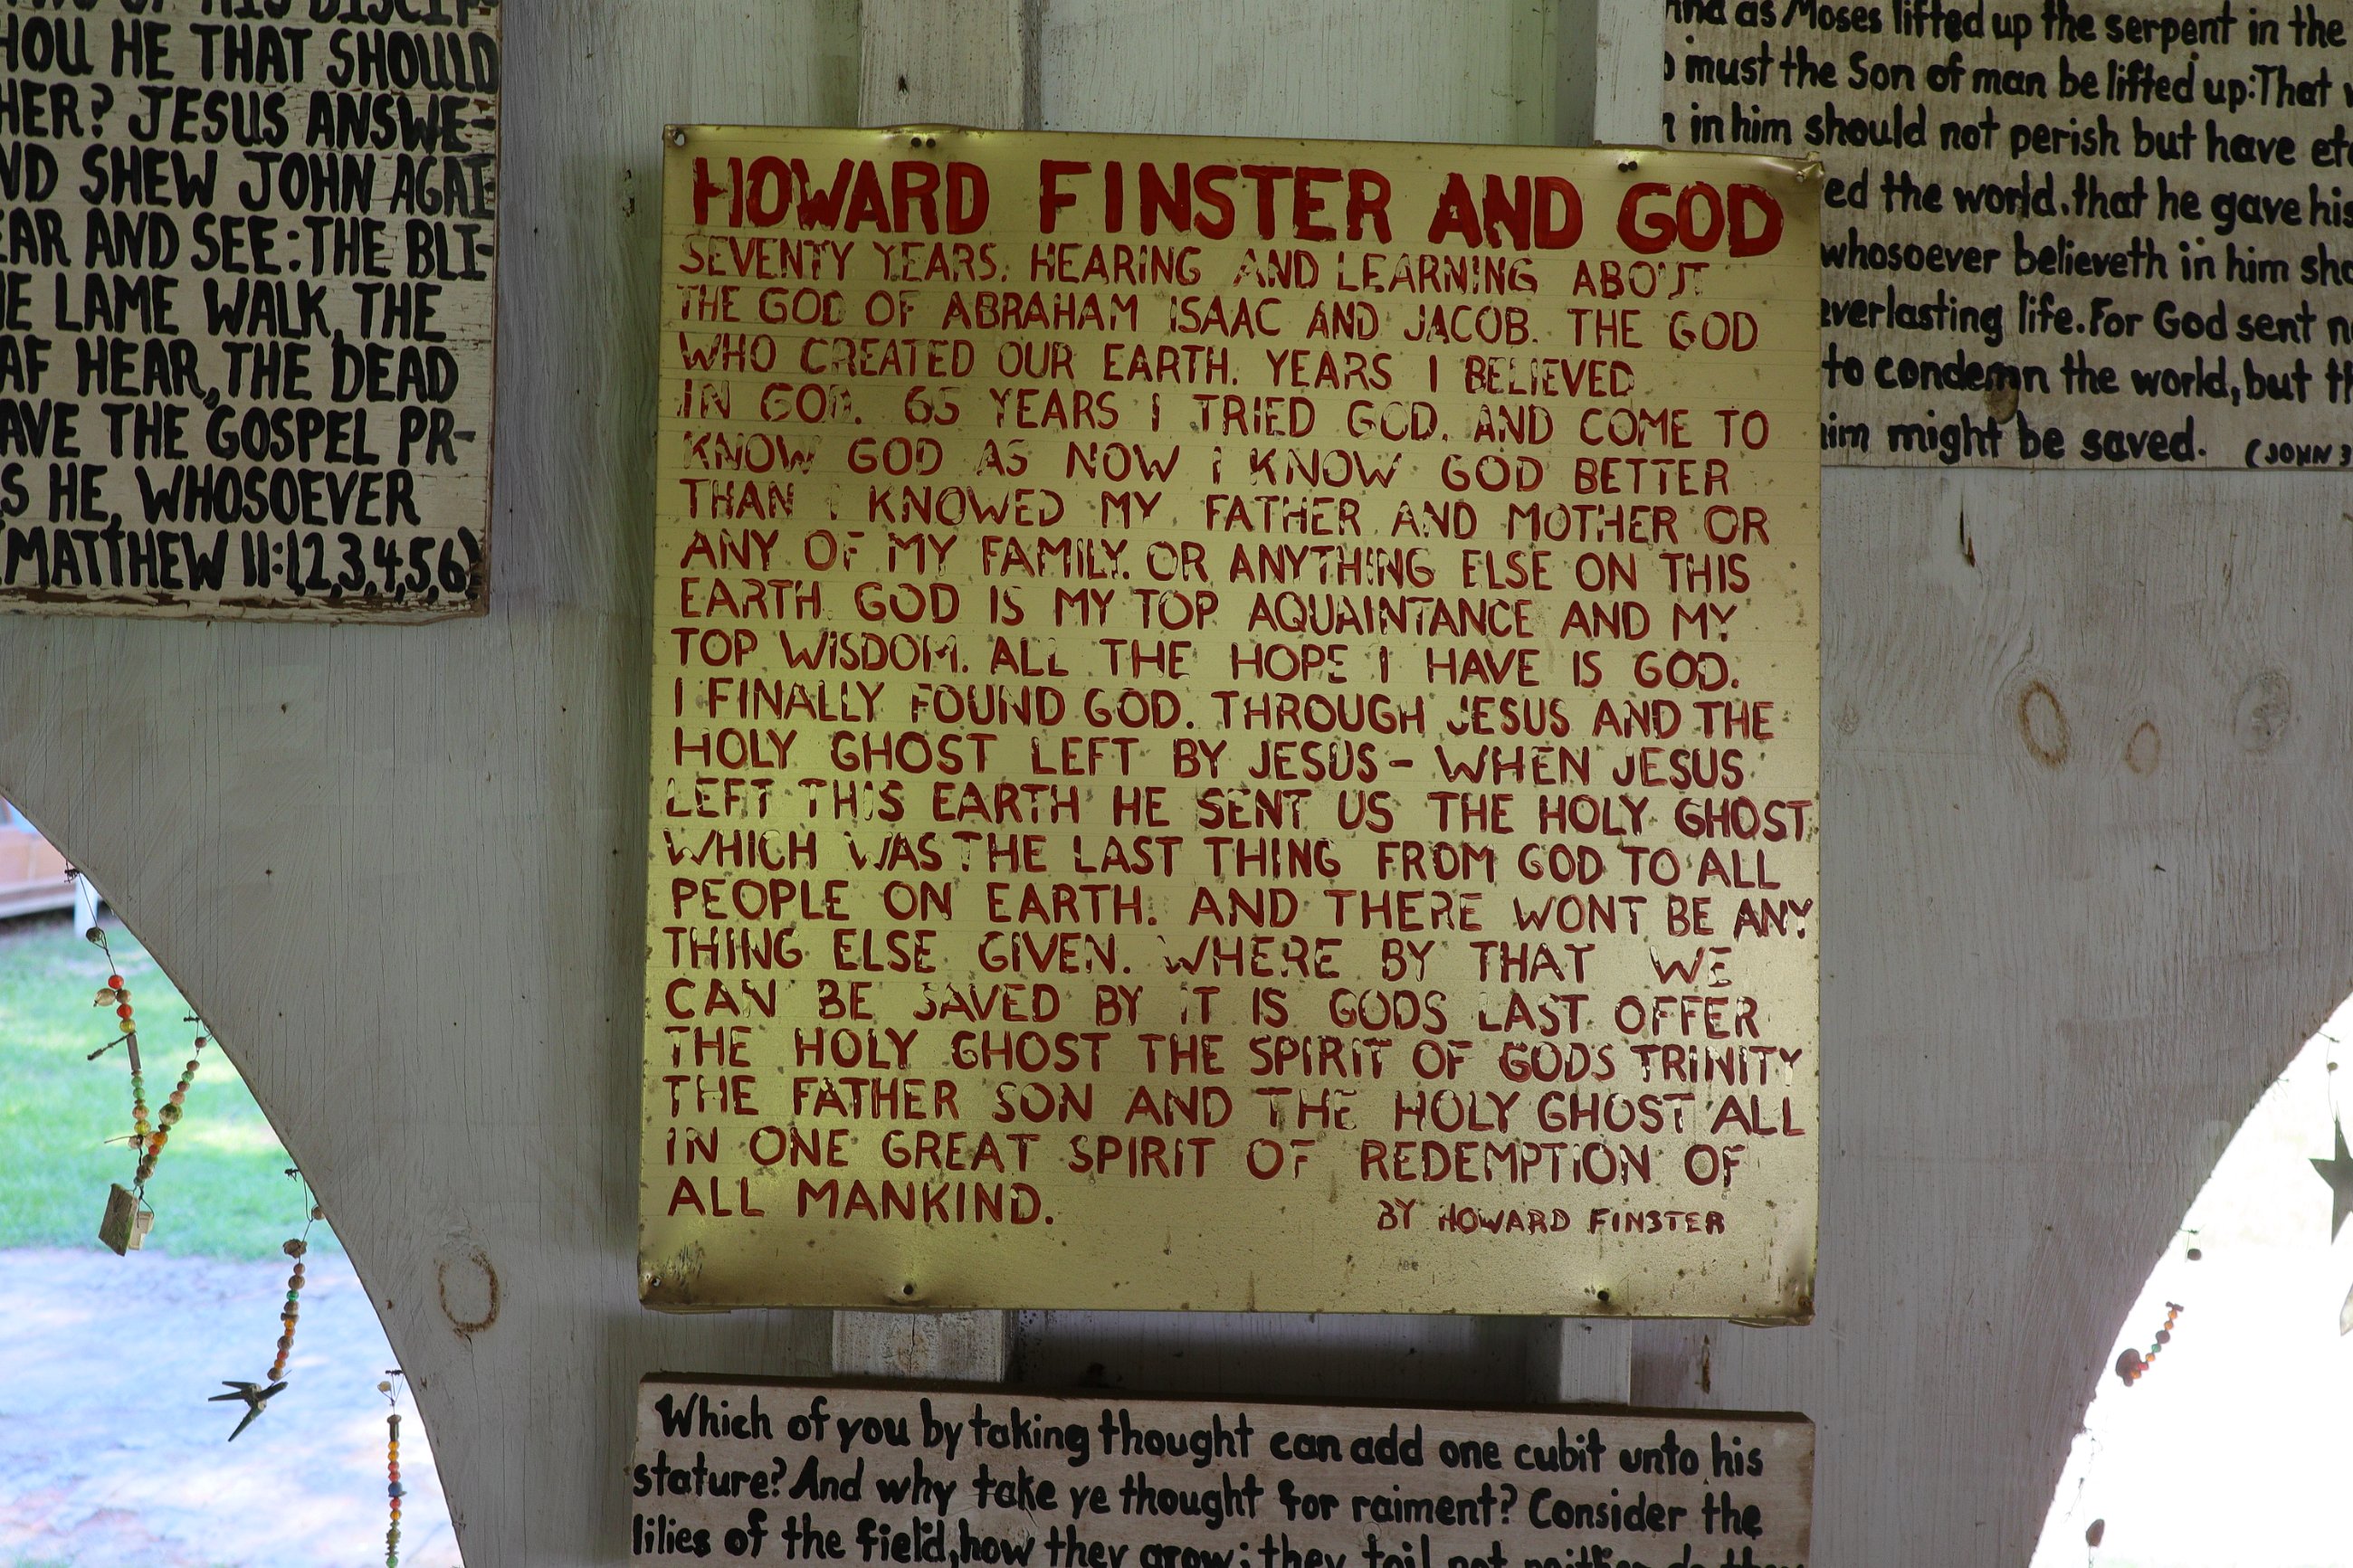 HOU HE THAT SHOULD
HER? JESUS ANSWE-
ND SHEW JOHN AGAI-
EAR AND SEE: THE BLI-
HE LAME WALK, THE
AF HEAR, THE DEAD
AVE THE GOSPEL PR-
S HE, WHOSOEVER
(MATTHEW 11:(2,3,4,5,6)
HOWARD FINSTER AND GOD
SEVENTY YEARS. HEARING AND LEARNING ABOUT
THE GOD OF ABRAHAM ISAAC AND JACOB. THE GOD
WHO CREATED OUR EARTH. YEARS I BELIEVED
IN GOD. 65 YEARS I TRIED GOD. AND COME TO
KNOW GOD AS NOW I KNOW GOD BETTER
THAN I KNOWED MY FATHER AND MOTHER OR
ANY OF MY FAMILY. OR ANYTHING ELSE ON THIS
EARTH GOD IS MY TOP AQUAINTANCE AND MY
TOP WISDOM. ALL THE HOPE I HAVE IS GOD.
I FINALLY FOUND GOD. THROUGH JESUS AND THE
HOLY GHOST LEFT BY JESUS- WHEN JESUS
LEFT THIS EARTH HE SENT US THE HOLY GHOST
WHICH WAS THE LAST THING FROM GOD TO ALL
PEOPLE ON EARTH. AND THERE WONT BE ANY
THING ELSE GIVEN. WHERE BY THAT WE
CAN BE SAVED BY IT IS GODS LAST OFFER
THE HOLY GHOST THE SPIRIT OF GODS TRINITY
THE FATHER SON AND THE HOLY GHOST ALL
IN ONE GREAT SPIRIT OF REDEMPTION OF
ALL MANKIND.
BY HOWARD FINSTER
as Moses lifted up the serpent in the
must the Son of man be lifted up: That
in him should not perish but have
ed the world, that he gave his
whosoever believeth in him
everlasting life. For God sent
to condemn the world, but
him might be saved. (JOHN 3
Which of you by taking thought can add one cubit unto his
stature? And why take ye thought for raiment? Consider the
lilies of the field, how they grow; they toil not neither do they